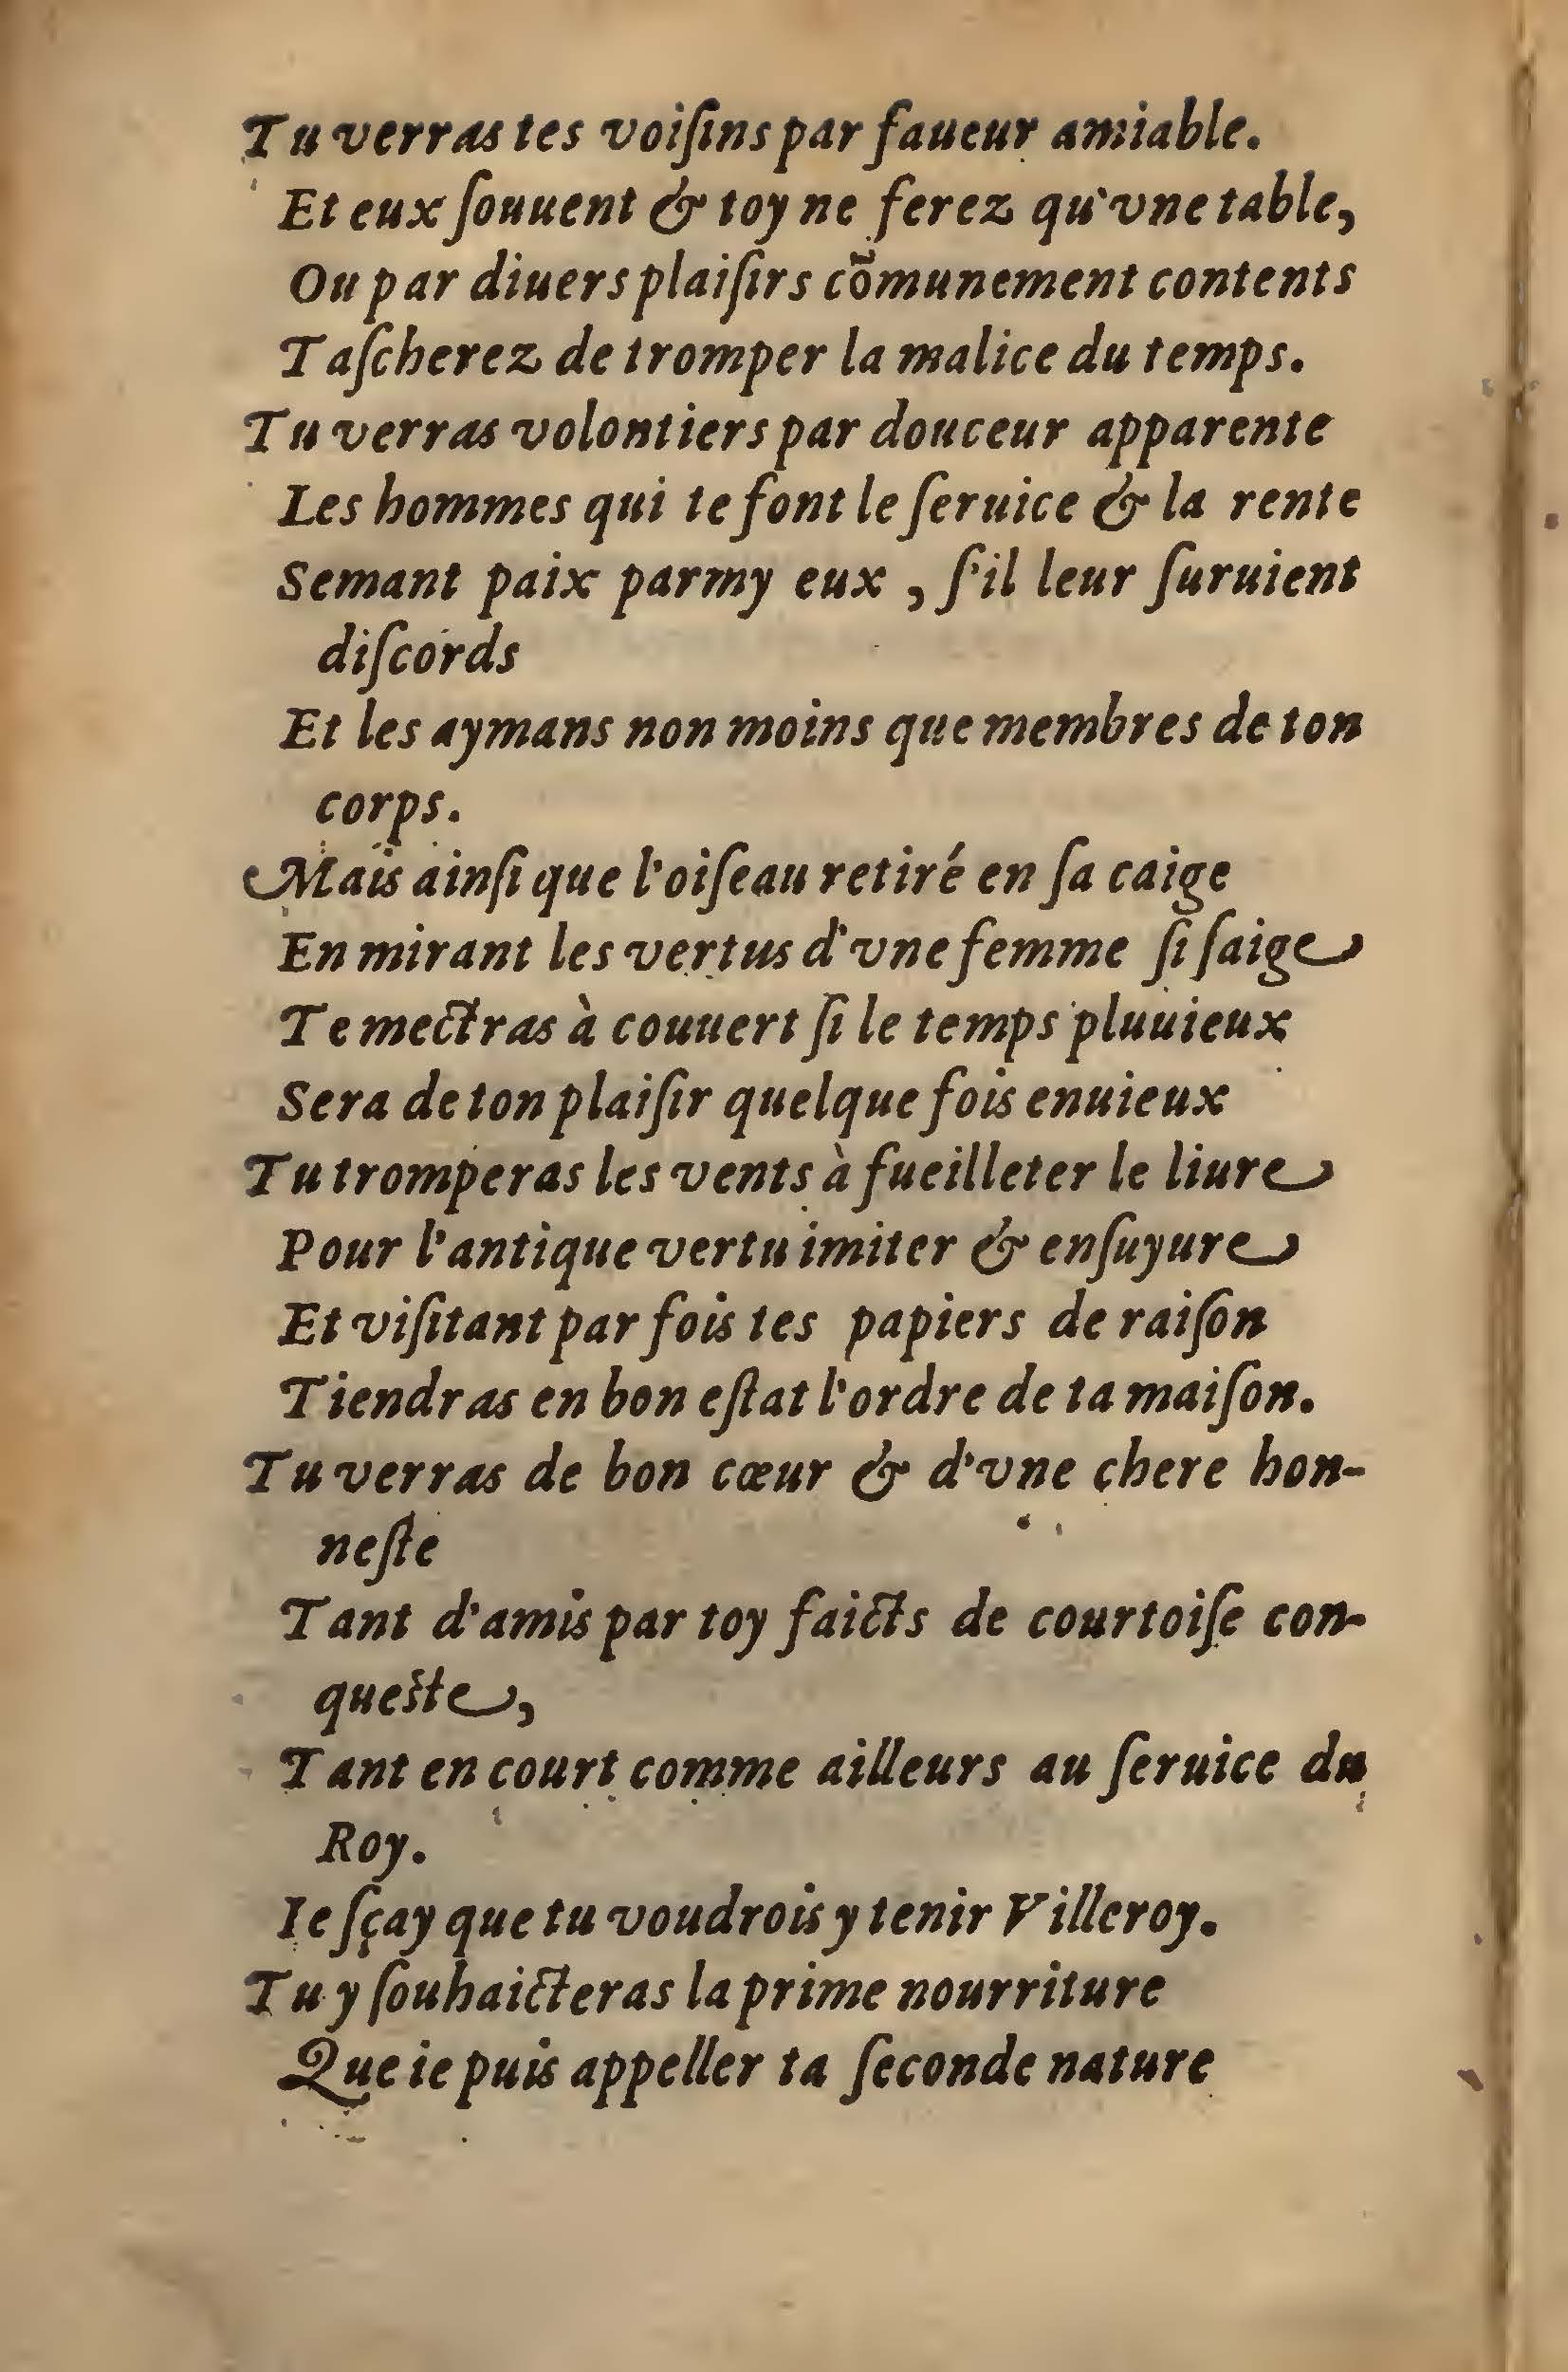 Tu verras tes voiſins par faueur amiable.
Et eux ſouuent & toy ne ferez qu'vne table,
Ou par diuers plaiſirs cõmunement contents
Taſcherez de tromper la malice du temps.
Tu verras volontiers par douceur apparente
Les hommes qui te font le ſeruice & la rente
Semant paix parmy eux , ſ'il leur ſuruient
diſcords
Et les aymans non moins que membres de ton
corps.
Mais ainſi que l'oiſeau retiré en ſa caige
En mirant les vertus d'vne femme ſi ſaige
Te mectras à couuert ſi le temps pluuieux
Sera de ton plaiſir quelque fois enuieux
Tu tromperas les vents à fueilleter le liure
Pour l'antique vertu imiter & enſuyure
Et viſitant par fois tes papiers de raiſon
Tiendras en bon eſtat l'ordre de ta maiſon.
Tu verras de bon cœur & d'vne chere hon-
neſte
Tant d'amis par toy faicts de courtoiſe con-
queſte,
Tant en court comme ailleurs au ſeruice du
Roy.
Ie ſçay que tu voudrois y tenir Villeroy.
Tu y ſouhaicteras la prime nourriture
Que ie puis appeller ta ſeconde nature